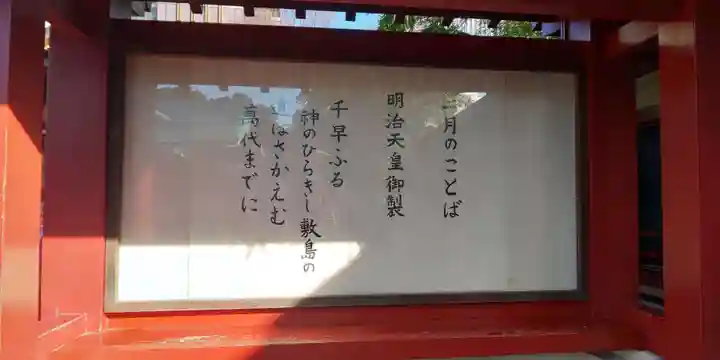 月のことば
明治天皇御製
千早ふる
神のひらきし敷島の
はさかえむ
萬代までに